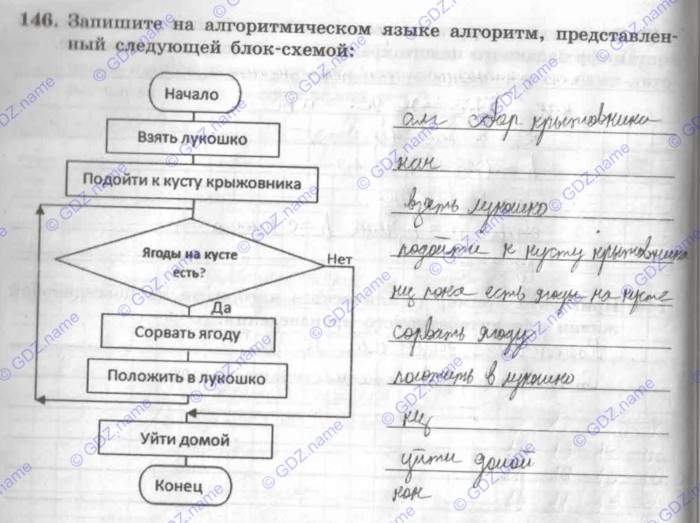 146. Запишите на алгоритмическом языке алгоритм, представлен-
ный следующей блок-схемой:
Начало
Взять лукошко
Подойти к кусту крыжовника
Ягоды на кусте
есть?
Нет
Да
Сорвать ягоду
Положить в лукошко
Уйти домой
Конец
алг сбор крыжовника
нач
взять лукошко
подойти к кусту крыжовника
нц пока есть ягоды на кусте
сорвать ягоду
положить в лукошко
кц
уйти домой
кон
© GDZ.name